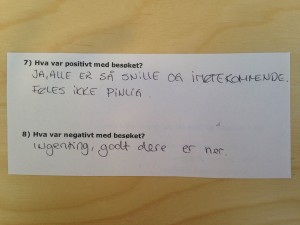 7) Hva var positivt med besøket?
JA, ALLE ER SÅ SNILLE OG IMØTEKOMMENDE.
FØLES IKKE PINLIG.
8) Hva var negativt med besøket?
ingenting, godt dere er her.